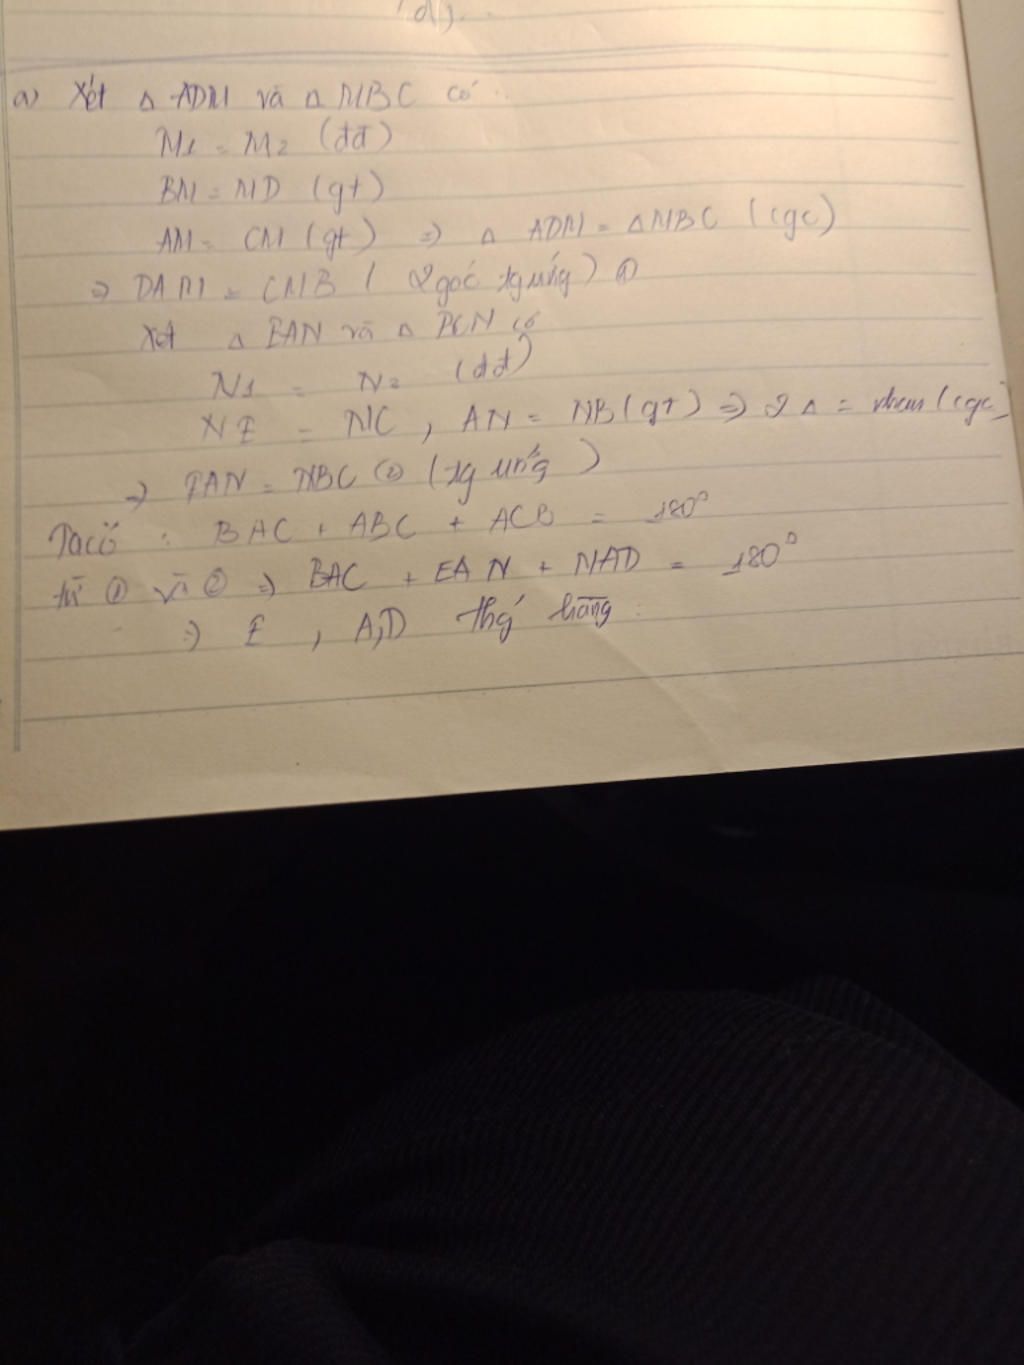 d).
a) Xét Δ ADM và Δ MBC có
M1 = M2 (đđ)
BM = MD (gt)
AM = CM (gt) => Δ ADM = Δ MBC (cgc)
=> DAM = CMB ( 2 góc tg ứng) ①
Xét Δ EAN và Δ BCN có
N1 = N2 (đđ)
NE = NC, AN = NB (gt) => 2 Δ = nhau (cgc)
=> EAN = NBC ② (tg ứng)
Ta có : BAC + ABC + ACB = 180°
từ ① và ② => BAC + EAN + MAD = 180°
=> E, A, D thg hàng